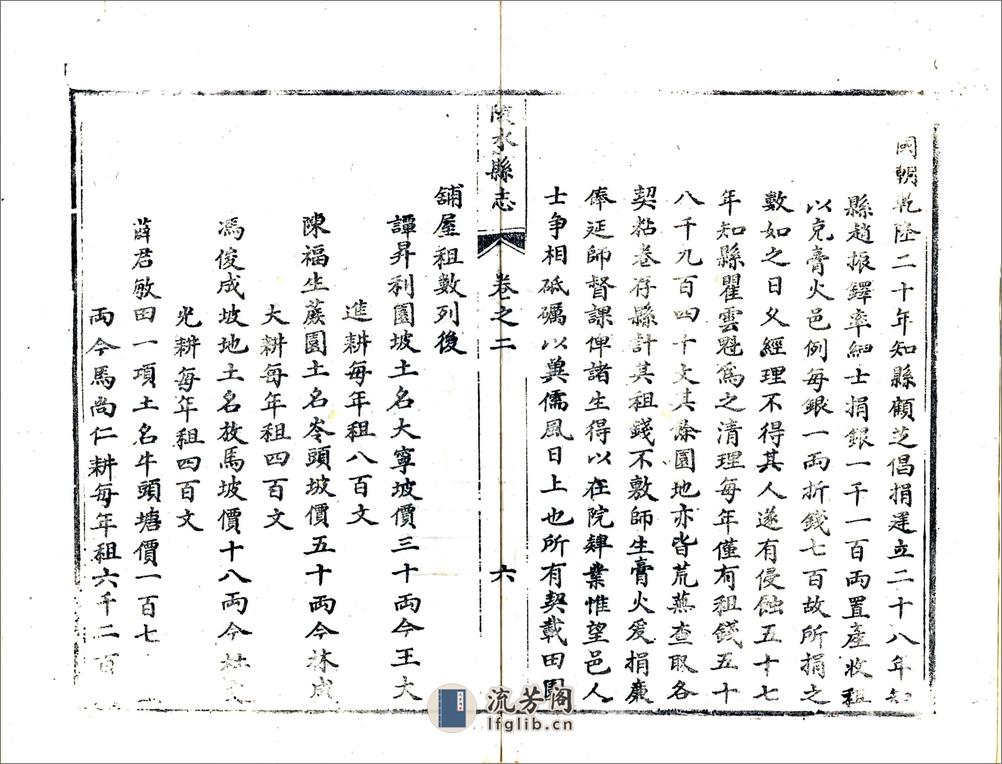 國朝乾隆二十年知縣顧芝倡捐建立二十八年知
縣趙振鐸率紳士捐銀一千一百両置產收租
以充膏火邑例每銀一両折錢七百故所捐之
數如之日乆經理不得其人遂有侵蝕五十七
年知縣瞿雲魁為之清理每年僅有租錢五十
八千九百四十文其餘園地亦皆荒蕪查取各
契粘卷存縣計其租錢不敷師生膏火爰捐廉
俸延師督課俾諸生得以在院肄業惟望邑人
士争相砥礪以興儒風日上也所有契載田園
陵水縣志
卷之二
六
舖屋租數列後
譚昇利園坡土名大寧坡價三十両今王大
進耕每年租八百文
陳福生蕨園土名岺頭坡價五十両今林成
大耕每年租四百文
馮俊成坡地土名放馬坡價十八両今林
光耕每年租四百文
薛君敏田一項土名牛頭塘價一百七
両今馬尚仁耕每年租六千二百
流芳阁
lfglib.cn